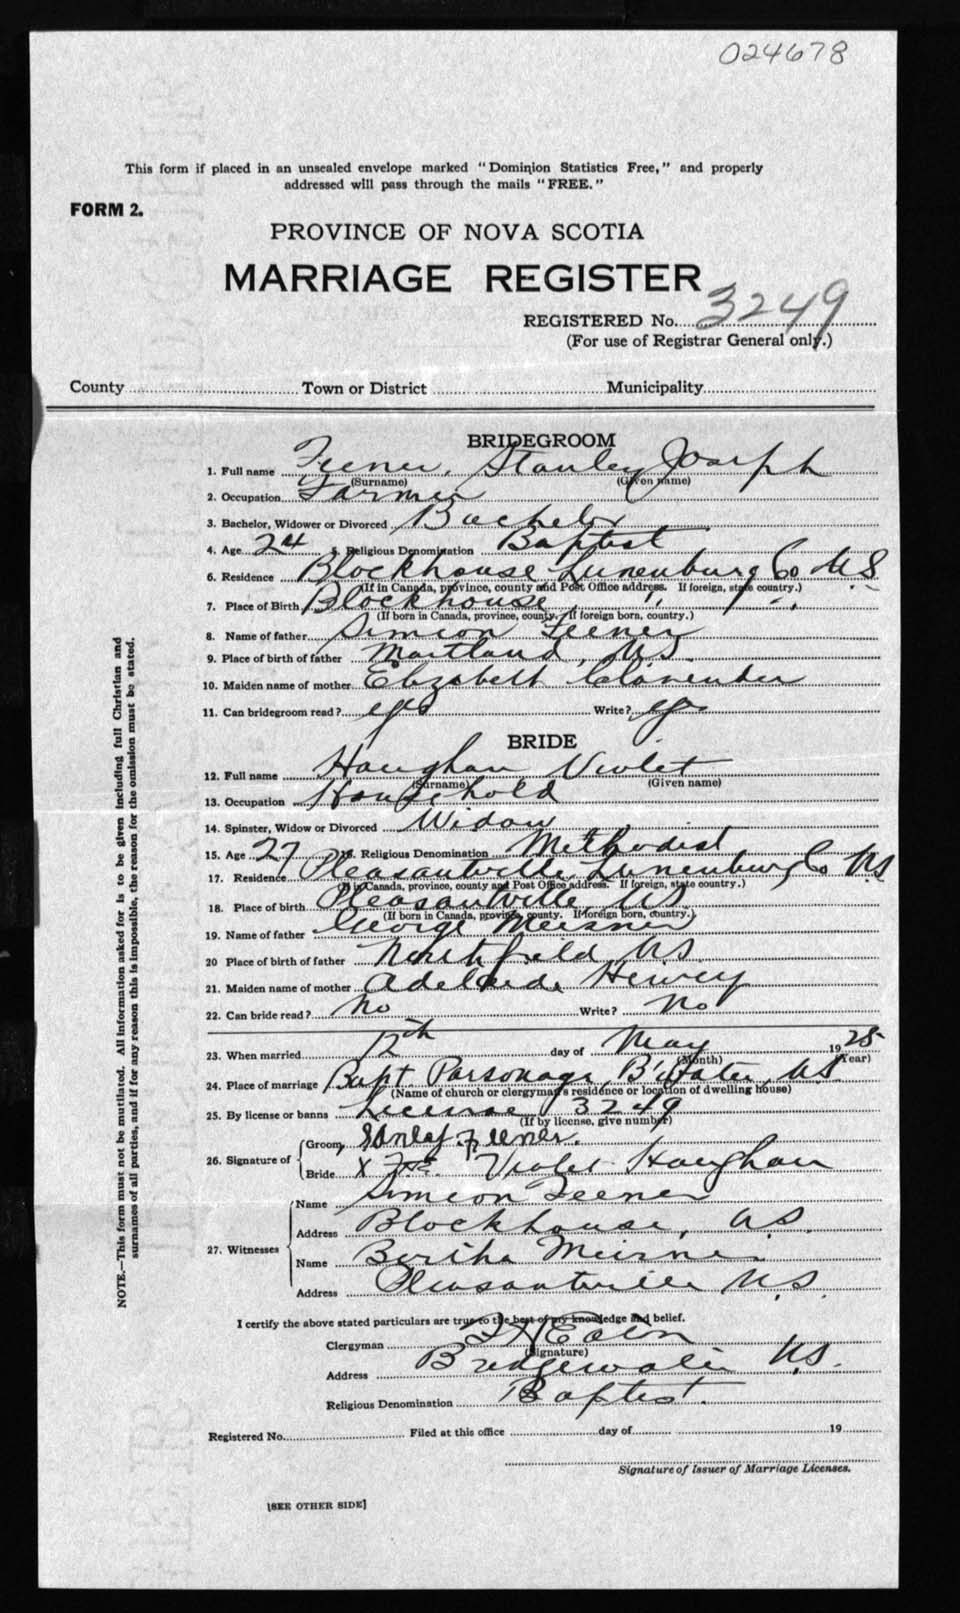 024678
This form if placed in an unsealed envelope marked "Dominion Statistics Free," and properly
addressed will pass through the mails "FREE."
FORM 2.
PROVINCE OF NOVA SCOTIA
MARRIAGE REGISTER
REGISTERED No. 3249
(For use of Registrar General only.)
County Town or District Municipality
BRIDEGROOM
1. Full name Feener, Stanley Joseph
(Surname) (Given name)
2. Occupation Farmer
3. Bachelor, Widower or Divorced Bachelor
4. Age 24 5. Religious Denomination Baptist
6. Residence Blockhouse Lunenburg Co N S
(If in Canada, province, county and Post Office address. If foreign, state country.)
7. Place of Birth Blockhouse " " "
(If born in Canada, province, county. If foreign born, country.)
8. Name of father Simeon Feener
9. Place of birth of father Maitland, N.S.
10. Maiden name of mother Elizabeth
11. Can bridegroom read? yes Write? yes
BRIDE
12. Full name Haughan Violet
(Surname) (Given name)
13. Occupation Household
14. Spinster, Widow or Divorced Widow
15. Age 27 16. Religious Denomination Methodist
17. Residence Pleasantville, Lunenburg Co N S
(If in Canada, province, county and Post Office address. If foreign, state country.)
18. Place of birth Pleasantville, N.S.
(If born in Canada, province, county. If foreign born, country.)
19. Name of father George Meisner
20 Place of birth of father Northfield, N.S.
21. Maiden name of mother Adelaide Hervey
22. Can bride read? No Write? No
23. When married 12th day of May 1925
(Month) (Year)
24. Place of marriage Bapt. Parsonage, B'Water, N.S.
(Name of church or clergyman's residence or location of dwelling house)
25. By license or banns License 3249
(If by license, give number)
26. Signature of Groom, Feener.
Bride X Violet Haughan
27. Witnesses Name Simeon Feener
Address Blockhouse, N.S.
Name Bertha Meisner
Address Pleasantville N.S.
I certify the above stated particulars are true to the best of my knowledge and belief.
Clergyman
(Signature)
Address Bridgewater N.S.
Religious Denomination Baptist.
Registered No. Filed at this office day of 19
Signature of Issuer of Marriage Licenses.
[SEE OTHER SIDE]
NOTE.—This form must not be mutilated. All information asked for is to be given including full Christian and
surnames of all parties, and if for any reason this is impossible, the reason for the omission must be stated.